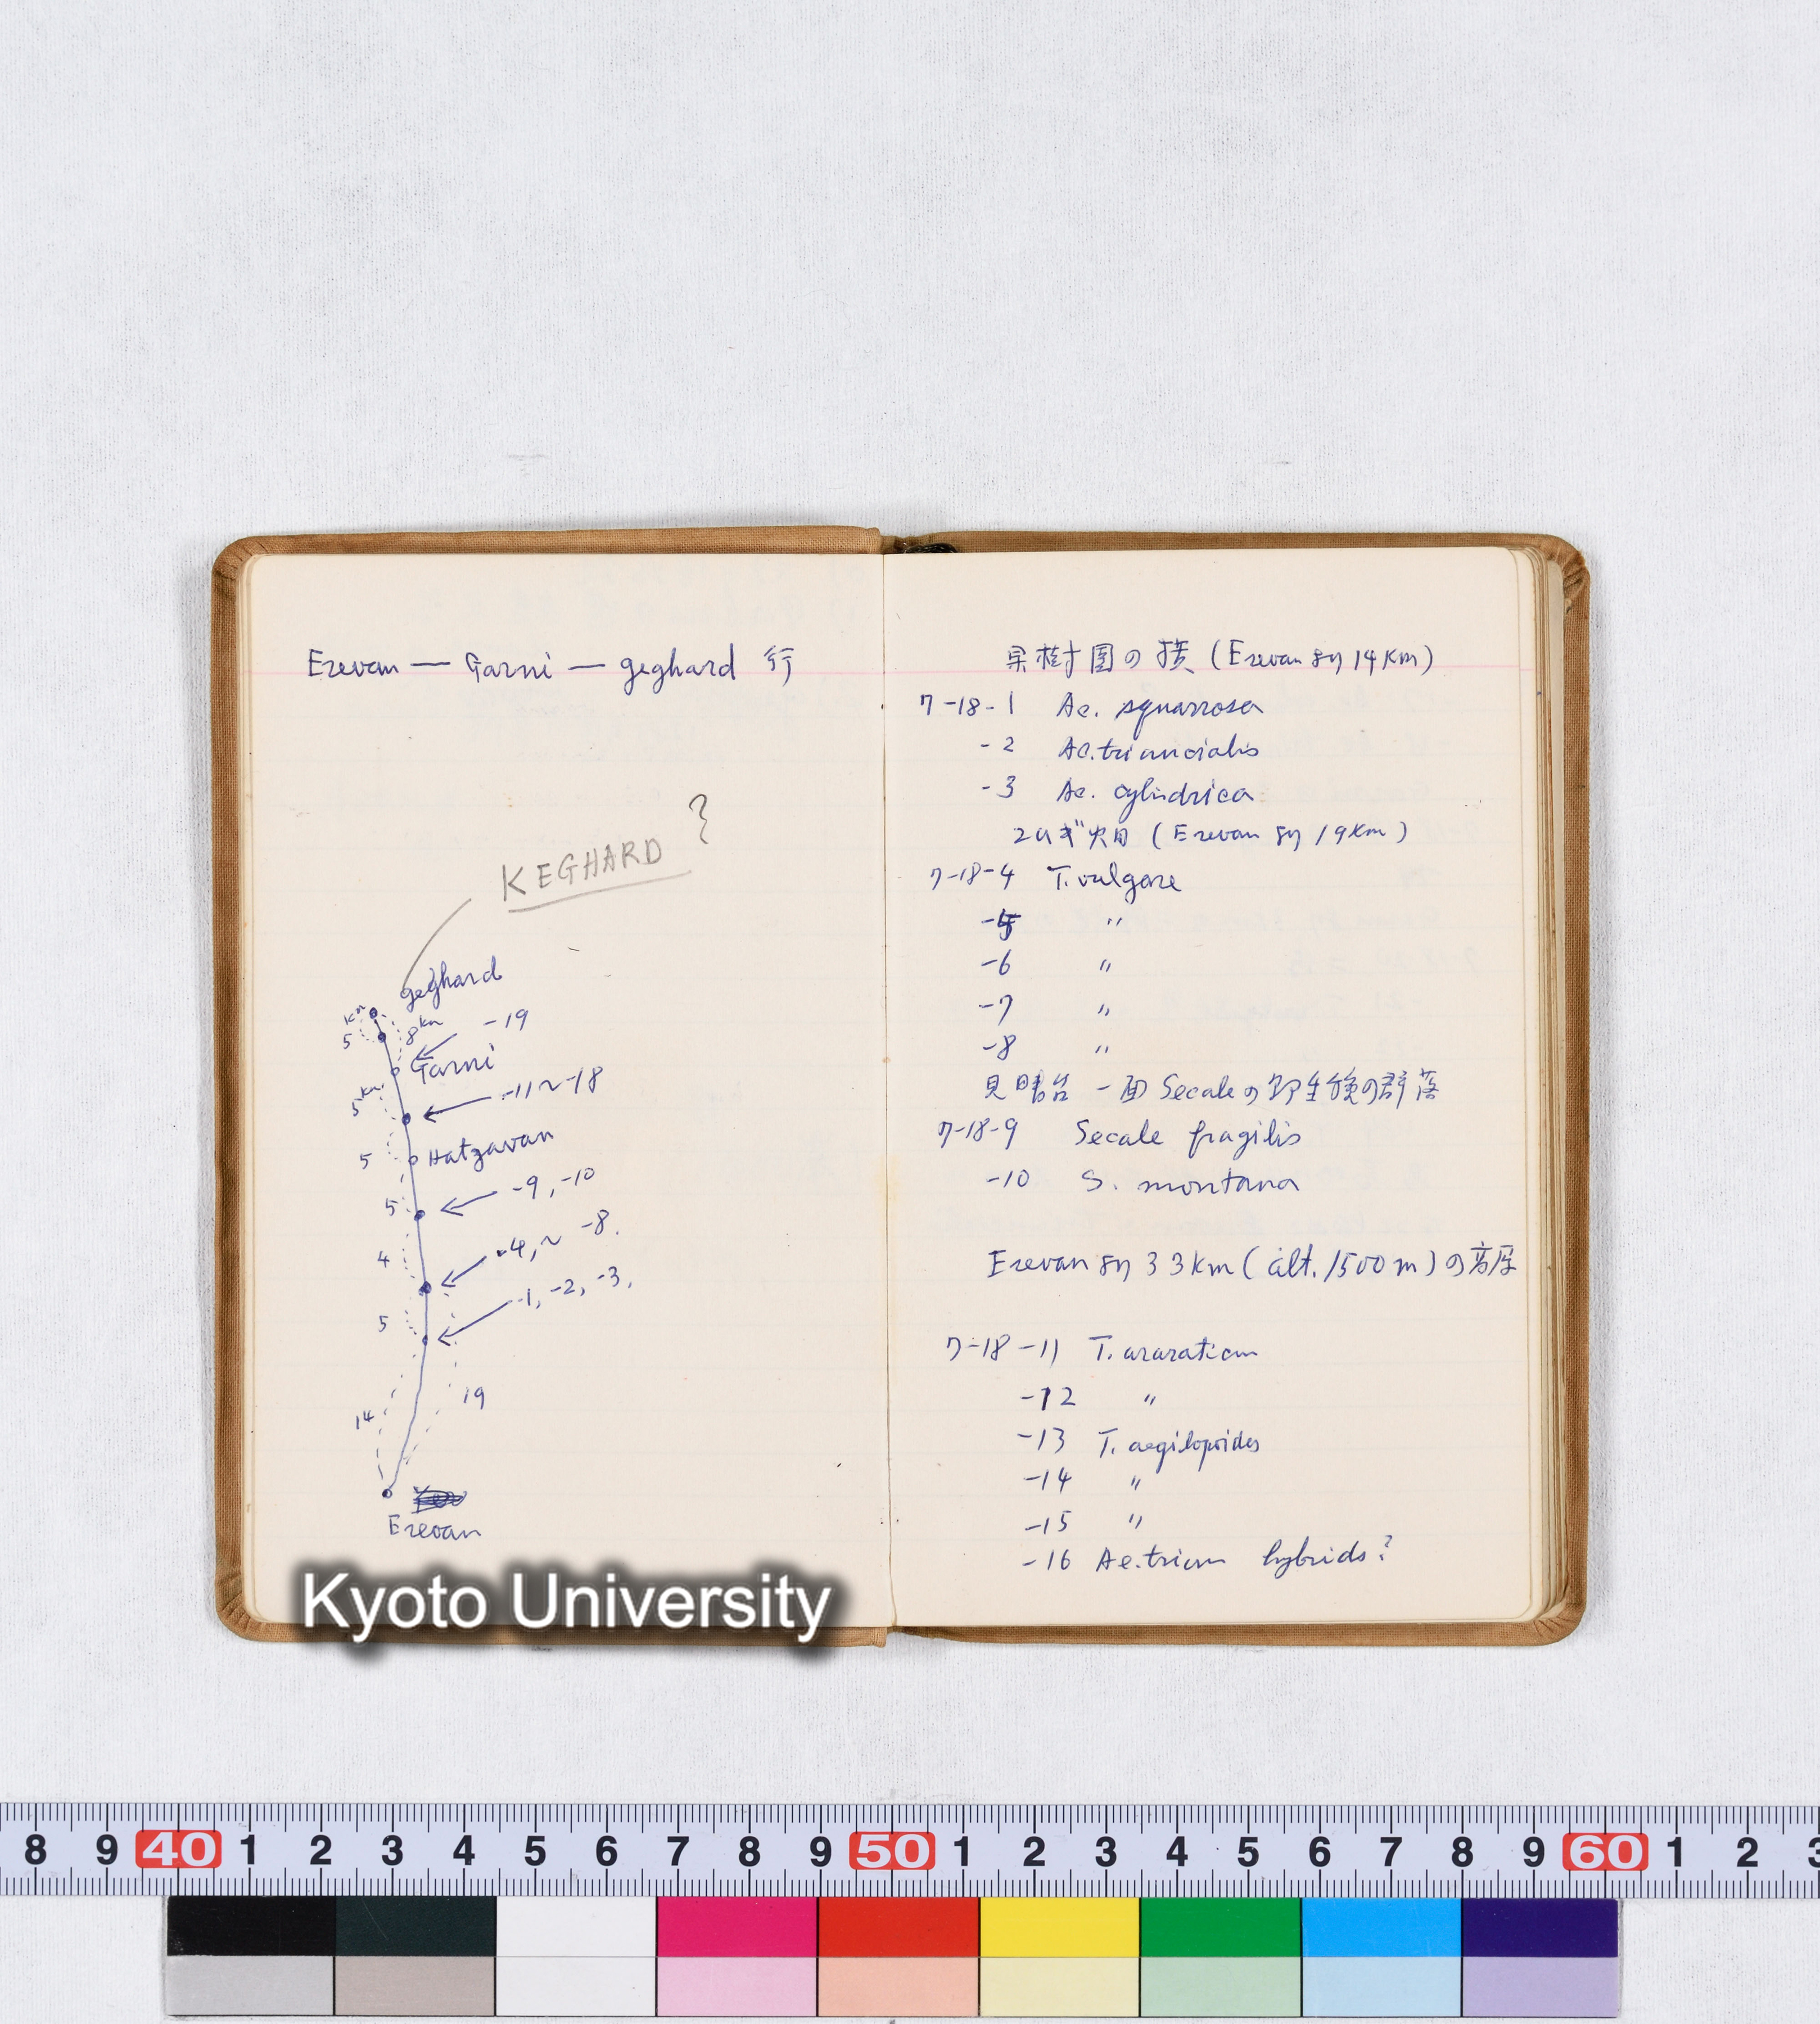 Erevan — Garni — geghard 行
KEGHARD ?
geghard
Km
5
8km
-19
Garni
5km
-11~-18
Hatzavan
5
-9, -10
5
4
-4, ~ -8.
-1, -2, -3,
5
14
19
Erevan
果樹園の横 (Erevan より 14Km)
7-18-1 Ae. squarrosa
-2 Ae. triuncialis
-3 Ae. cylindrica
コムギ畑 (Erevan より 19Km)
7-18-4 T. vulgare
-5 〃
-6 〃
-7 〃
-8 〃
見晴台 一面 Secale の野生種の群落
7-18-9 Secale fragilis
-10 S. montana
Erevan より 33km (alt. 1500m) の高原
7-18-11 T. araraticum
-12 〃
-13 T. aegilopoides
-14 〃
-15 〃
-16 Ae. trium hybrids?
Kyoto University
8 9 40 1 2 3 4 5 6 7 8 9 50 1 2 3 4 5 6 7 8 9 60 1 2 3